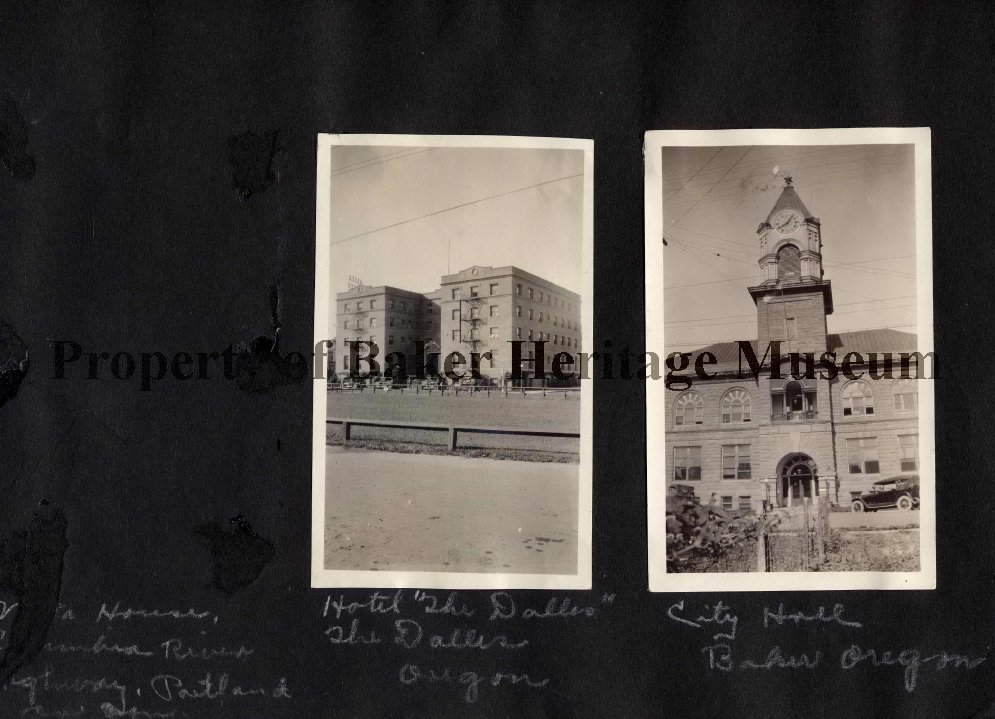 Property of Baker Heritage Museum
House,
River
Portland
Hotel "The Dalles"
The Dalles
Oregon
City Hall
Baker Oregon